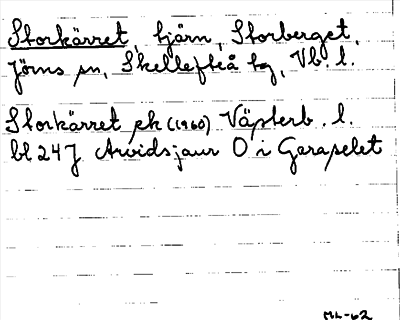 Storkärret, tjärn, Storberget,
Jörns sn, Skellefteå tg, Vb. l.
Storkärret ek (1960) Västerb. l.
bl 24 J Arvidsjaur O i Garaselet
ML-62